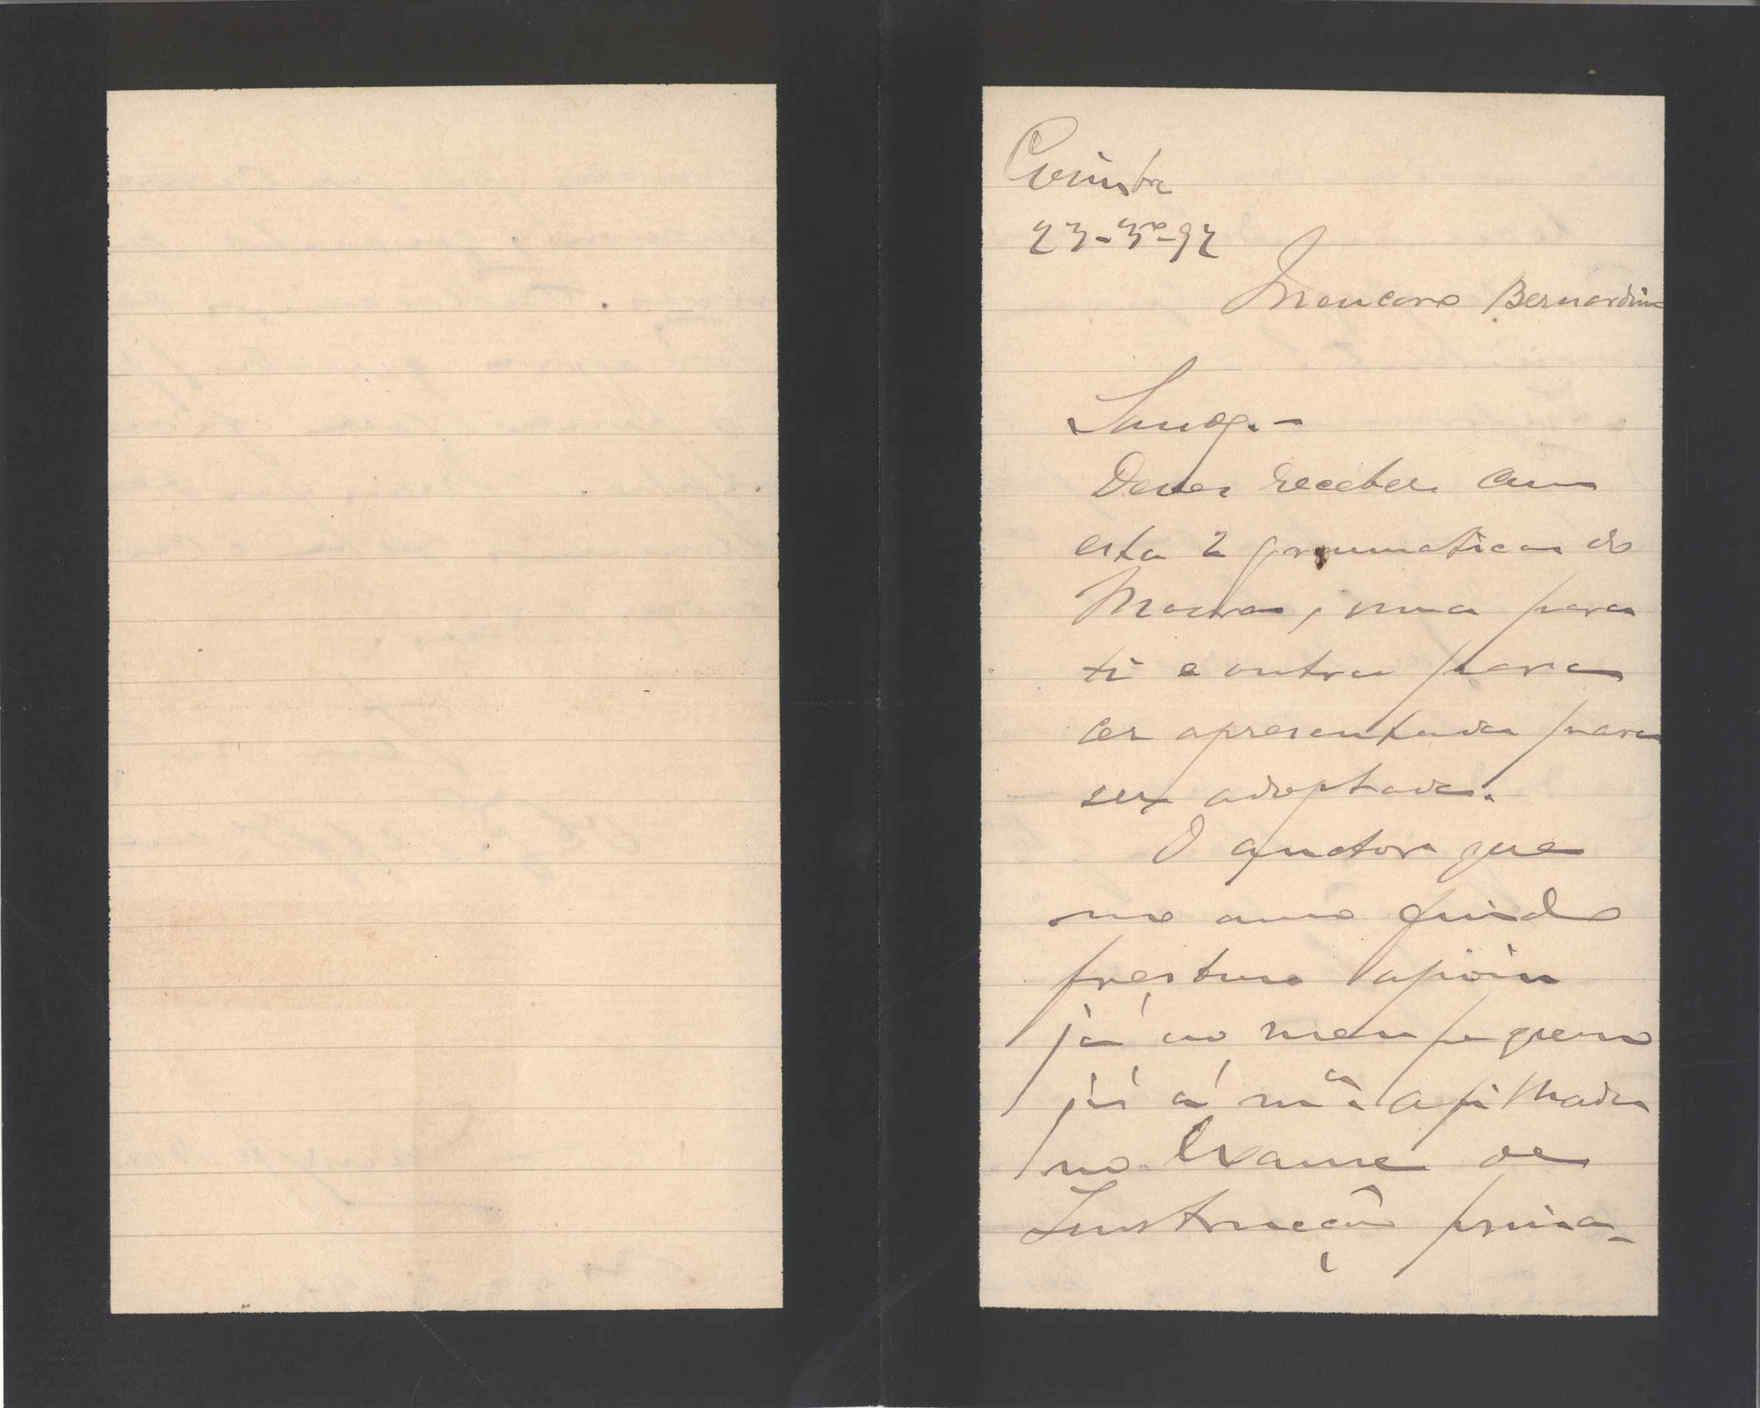 Coimbra
23-3º-92
Meu caro Bernardino
Saude.-
Deves receber com
esta 2 grammaticas do
Moura, uma para
ti e outra para
ser apresentada para
ser adoptada.
O auctor que
me
prestou apoio
já ao meu pequeno
já á mª afilhada
no Exame de
Instrucção prima-